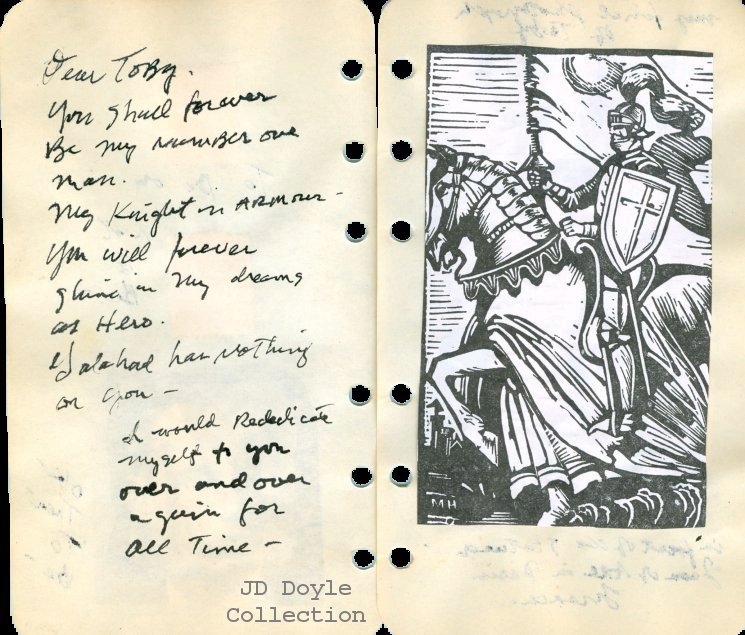 Dear Toby.
You shall forever
Be my number one
man.
My Knight in Armour -
You will forever
shine in my dreams
as Hero.
Galahad has nothing
on you -
I would Rededicate
myself to you
over and over
again for
all Time -
JD Doyle
Collection
MH